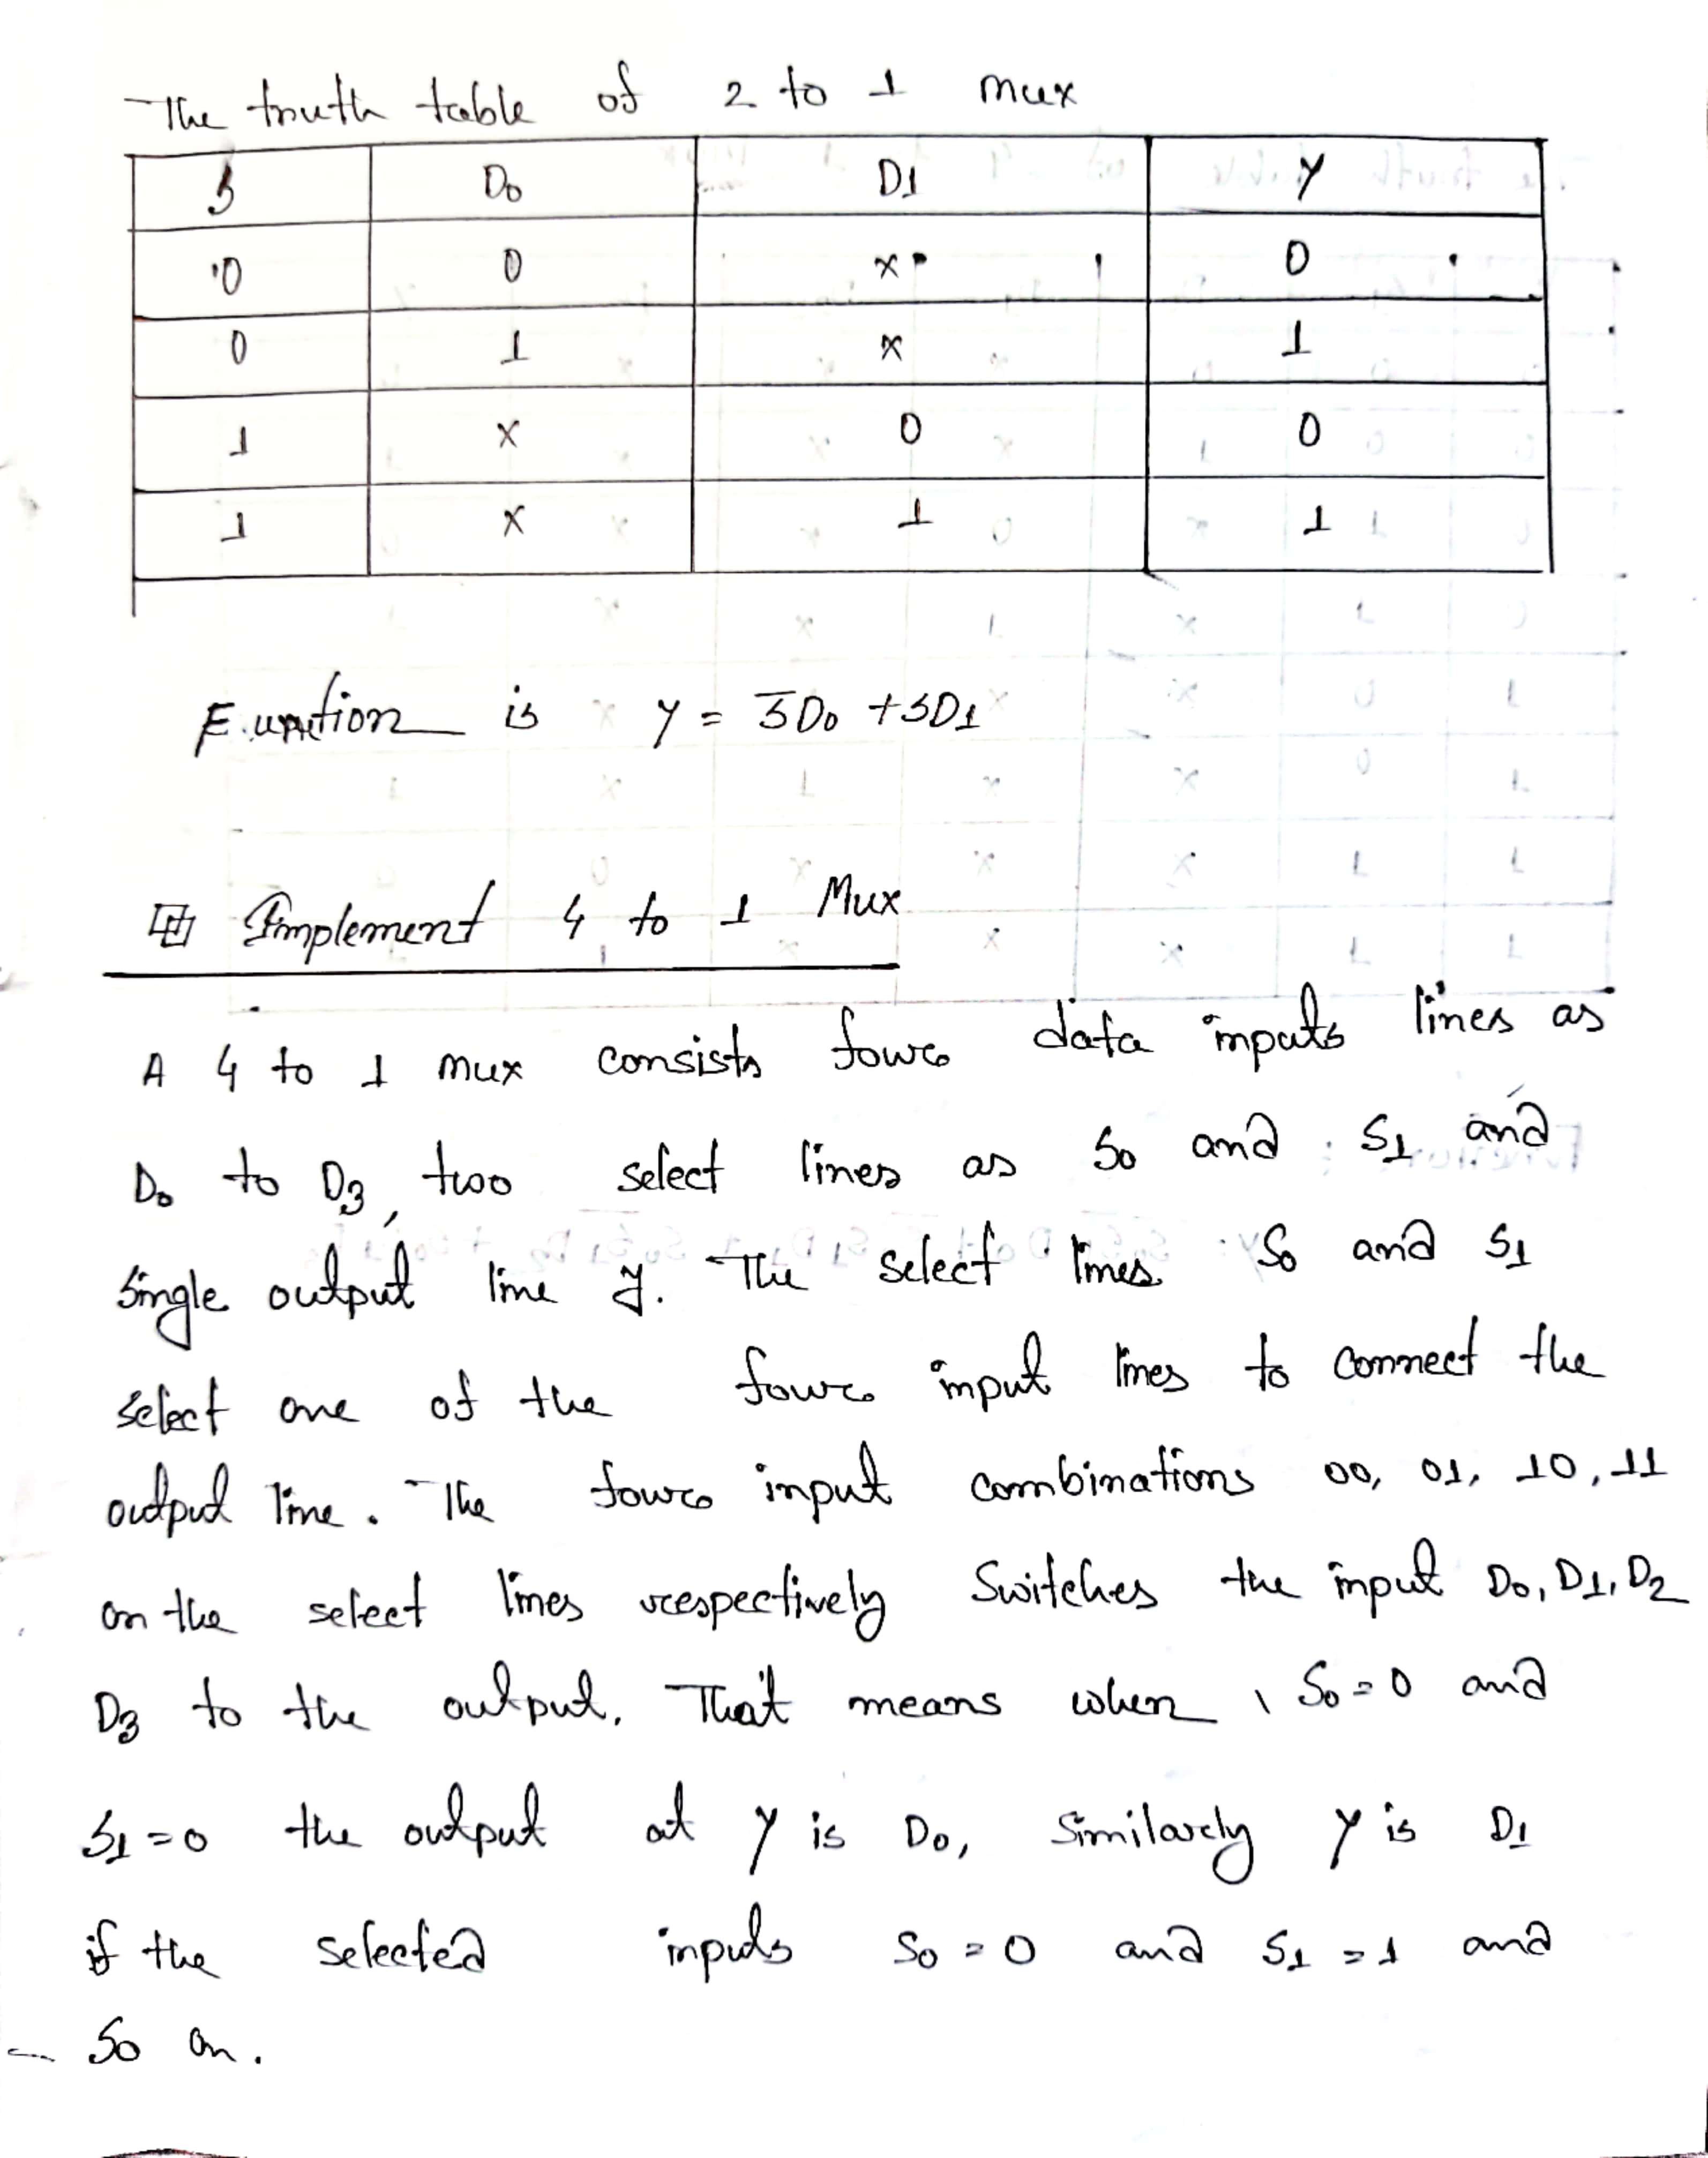 The truth table of 2 to 1 mux
S D0 D1 Y
0 0 x 0
0 1 x 1
1 x 0 0
1 x 1 1
Function is Y = S̅D0 + SD1
Implement 4 to 1 Mux
A 4 to 1 mux consists four data inputs lines as
D0 to D3, two select lines as S0 and S1 and
single output line y. The select lines S0 and S1
select one of the four input lines to connect the
output line. The four input combinations 00, 01, 10, 11
on the select lines respectively switches the input D0, D1, D2
D3 to the output. That means when, S0 = 0 and
S1 = 0 the output at Y is D0, similarly Y is D1
if the selected inputs S0 = 0 and S1 = 1 and
so on.